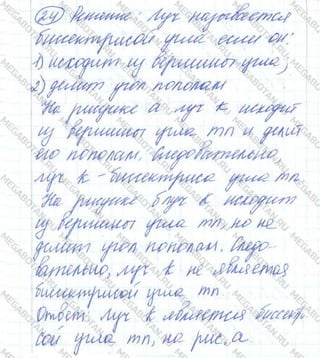 24) Решение: Луч называется
биссектрисой угла если он:
1) исходит из вершины угла;
2) делит угол пополам
На рисунке а луч k исходит
из вершины угла mn и делит
его пополам. Следовательно,
луч k - биссектриса угла mn.
На рисунке б луч k исходит
из вершины угла mn, но не
делит угол пополам. Следо-
вательно, луч k не является
биссектрисой угла mn.
Ответ: луч k является биссектри-
сой угла mn, на рис. а.